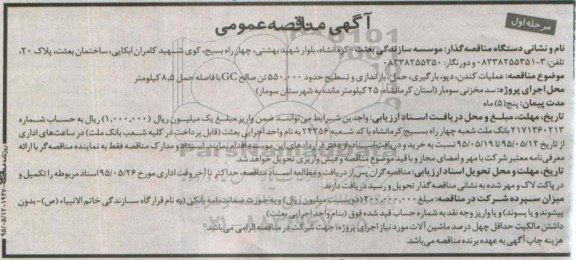 مرحله اول
آگهی مناقصه عمومی
نام و نشانی دستگاه مناقصه‌گذار: موسسه سازندگی بعثت - کرمانشاه، بلوار شهید بهشتی، چهار راه بسیج، کوی شهید کامران ابکایی، ساختمان بعثت، پلاک ۲۰،
تلفن: ۳-۰۸۳۳۸۲۵۵۳۵۱ و دورنگار: ۰۸۳۳۸۲۵۵۳۵۰
موضوع مناقصه: عملیات کندن، دپو، بارگیری، حمل، باراندازی و تسطیح حدود ۵۵۰,۰۰۰ تن مصالح GC با فاصله حمل ۸.۵ کیلومتر
محل اجرای پروژه: سد مخزنی سومار (استان کرمانشاه، ۲۵ کیلومتر مانده به شهرستان سومار)
مدت پیمان: پنج (۵) ماه
تاریخ، مهلت، مبلغ و محل دریافت اسناد ارزیابی: واجدین شرایط می‌توانند ضمن واریز مبلغ یک میلیون ریال (۱,۰۰۰,۰۰۰) ریال به حساب شماره
۲۱۷۱۳۶۰۲۱۲ بانک ملت شعبه چهار راه بسیج کرمانشاه با کد شعبه ۲۴۳۵۶ به نام واحد اجرایی بعثت (قابل پرداخت در کلیه شعب بانک ملت) در ساعت‌های اداری
از تاریخ ۹۵/۰۵/۱۲ تا ۹۵/۰۵/۱۹ نسبت به خرید و دریافت اسناد اقدام نمایند. اسناد و مدارک مناقصه فقط به نماینده مناقصه‌گر با ارائه
معرفی‌نامه معتبر شرکت با مهر و امضای مجاز و با قید موضوع مناقصه و فیش واریزی تحویل خواهد شد.
تاریخ، مهلت و محل تحویل اسناد ارزیابی: مناقصه‌گران پس از دریافت و مطالعه اسناد مناقصه، حداکثر تا آخر وقت اداری مورخ ۹۵/۰۵/۲۶ اسناد مربوطه را تکمیل و
در پاکت لاک و مهر شده به نشانی مناقصه‌گذار تحویل و رسید دریافت دارند.
میزان سپرده شرکت در مناقصه: مبلغ ۲۰۰,۰۰۰,۰۰۰ (دویست میلیون ریال) و به صورت ضمانتنامه بانکی (به نام قرارگاه سازندگی خاتم الانبیاء (ص) - بدون
پیشوند و یا پسوند) و یا واریز وجه نقد به شماره حساب قید شده فوق (بنام واحد اجرایی بعثت)
داشتن مالکیت حداقل چهل درصد ماشین آلات مورد نیاز اجرای پروژه، جهت شرکت در مناقصه الزامی می‌باشد.
هزینه چاپ آگهی به عهده برنده مناقصه می‌باشد.